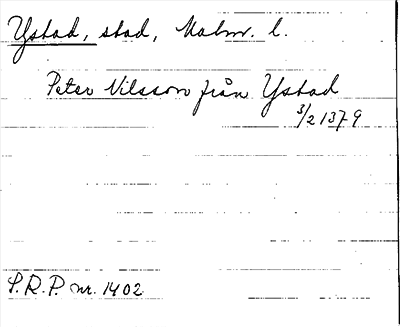 Ystad, stad, Malm. l.
Peter Nilsson från Ystad
3/2 1379
S.R.P. nr. 1402